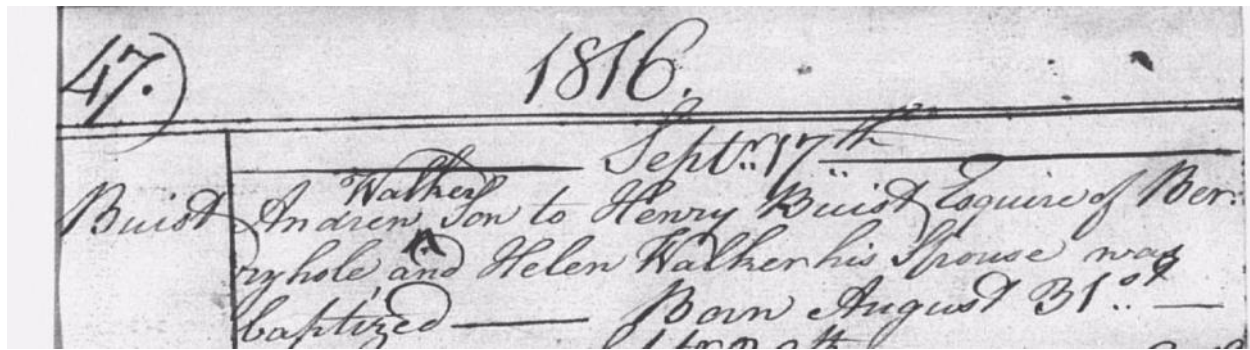 47.) 1816.
Septr. 17th
Walker
Buist Andrew, Son to Henry Buist Esquire of Ber:
ryhole, and Helen Walker his Spouse was
baptized — Born August 31st —